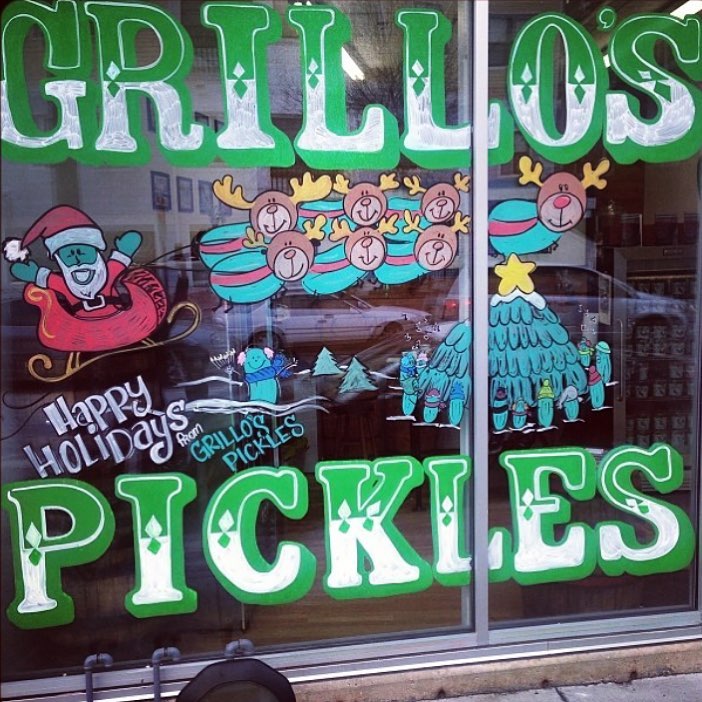 GRILLO'S
HAPPY
HOLIDAYS
from
GRILLO'S
PICKLES
PICKLES